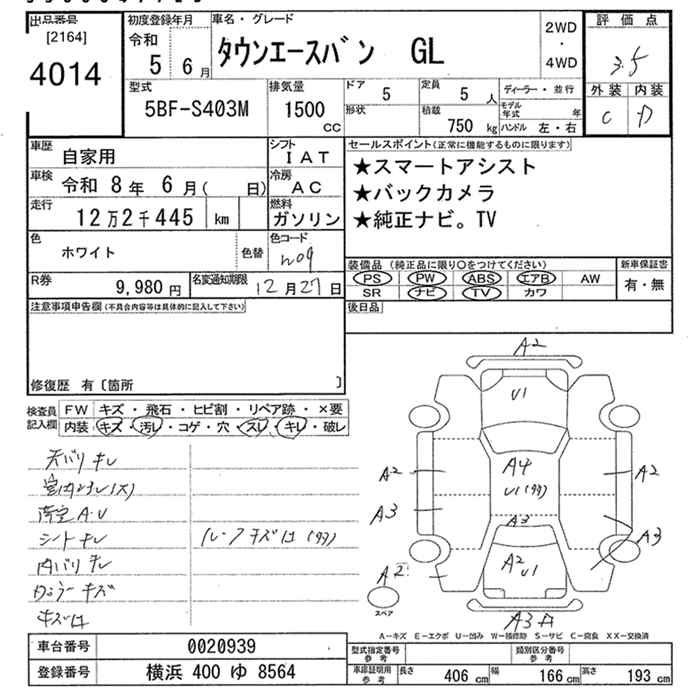 出品番号
[2164]
4014
初度登録年月
令和
5 6 月
車名・グレード
タウンエースバン GL
2WD
・
4WD
評価点
3.5
外装 内装
C D
型式
5BF-S403M
排気量
1500
CC
ドア
5
形状
定員
5 人
積載
750 kg
ディーラー・並行
モデル年式 年
ハンドル 左・右
車歴
自家用
シフト
IAT
車検
令和 8 年 6 月( 日)
冷房
AC
走行
12万2千445 km
燃料
ガソリン
色
ホワイト
色替
色コード
W09
R券
9,980 円
名変通知期限
12月27日
セールスポイント(正常に機能するものに限ります)
★スマートアシスト
★バックカメラ
★純正ナビ。TV
装備品 (純正品に限り○をつけてください)
PS PW ABS エアB AW
SR ナビ TV カワ
新車保証書
有・無
後日品
注意事項申告欄(不具合内容等は具体的に記入して下さい)
修復歴 有〔箇所 〕
検査員記入欄
FW キズ・飛石・ヒビ割・リペア跡・×要
内装 キズ・汚レ・コゲ・穴・スレ・キレ・破レ
天バリ キレ
室内ヨゴレ(大)
シートキレ
内バリ キレ
キズ凹
ルーフキズ凹(多)
A2
U1
A4
U1(多)
A3
A2
U1
A2
A3
A2
A2
A3
A3
スペア
A-キズ E-エクボ U-凹み W-補修跡 S-サビ C-腐食 XX-交換済
車台番号
0020939
登録番号
横浜 400 ゆ 8564
型式指定番号
参考
類別区分番号
参考
車庫証明用
参考
長さ
406 cm
幅
166 cm
高さ
193 cm